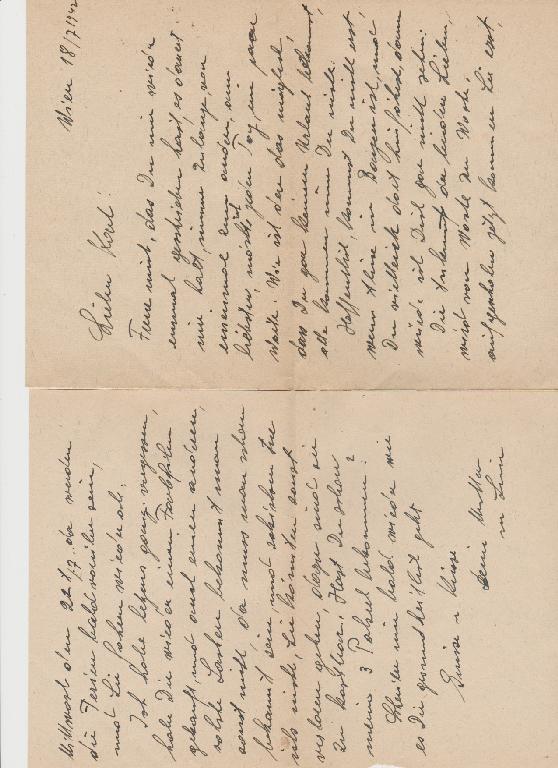 Wien 18/7 1942
Lieber Karl!
Freue mich, das Du mir wieder
einmal geschrieben hast, es dauert
mir halt immer zu lange, von
einenmal zum andern, am
liebsten möcht jeden Tag, ein paar
Worte. Wie ist den das möglich,
das Du gar keinen Urlaub bekommst,
alle kommen nur Du nicht.
Hoffentlich, kommst Du nicht erst,
wenn Aline in Bangen ist, und
Du vielleicht dort hinfährst, dann
würde ich Dich gar nicht sehn.
Die Ankunft der beiden Lieben,
wird von Woche zu Woche,
aufgeschoben jetzt kommen Sie erst,
Mittwoch den 22/7. da werden
die Ferien bald vorüber sein,
und Sie fahren wieder ab.
Ich habe bereits ganz vergessen,
habe Dir wieder einen
gekauft, und auch einen anderen,
solche Sachen bekommt man
sonst nicht da muss man schon
bekannt sein, und schicken tue
ich's nicht, Sie könnten sonst
verloren gehn, dazu sind sie
zu kostbar. Hast Du schon
meine 3 Packerl bekommen?
Schreibe mir bald wieder wie
es Dir gesundheitlich geht
Grüsse u Küsse
Deine Mutter